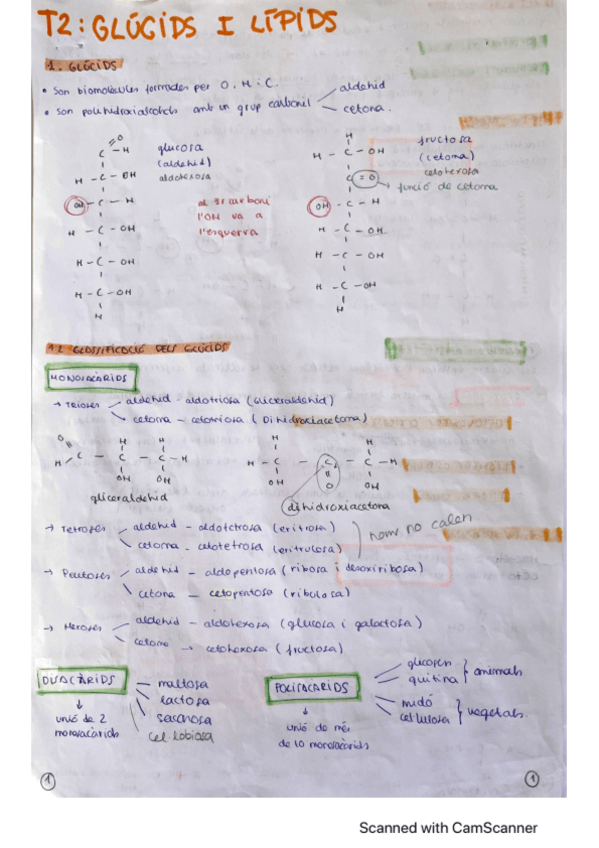 T2: GLÚCIDS I LÍPIDS
1. GLÚCIDS
• Són biomolècules formades per O, H i C.
• Són polihidroxialcohols amb un grup carbonil
aldehid
cetona.
glucosa
(aldehid)
aldohexosa
al 3r carboni
l'OH va a
l'esquerra
fructosa
(cetona)
cetohexosa
funció de cetona
O
C - H
H - C - OH
OH - C - H
H - C - OH
H - C - OH
H - C - OH
H
H
H - C - OH
C = O
OH - C - H
H - C - OH
H - C - OH
H - C - OH
H
1.2 CLASSIFICACIÓ DELS GLÚCIDS
MONOSACÀRIDS
→ Trioses
aldehid - aldotriosa (Gliceraldehid)
cetona - cetotriosa (Dihidroxiacetona)
O H H
H C - C - C - H
OH OH
gliceraldehid
H H
H - C - C - C - H
OH O OH
dihidroxiacetona
→ Tetroses
aldehid - aldotetrosa (eritrosa)
cetona - cetotetrosa (eritrulosa)
nom. no calen
→ Pentoses
aldehid - aldopentosa (ribosa i desoxiribosa)
cetona - cetopentosa (ribulosa)
→ Hexoses
aldehid - aldohexosa (glucosa i galactosa)
cetona → cetohexosa (fructosa)
DISACÀRIDS
↓
unió de 2
monosacàrids
maltosa
lactosa
sacarosa
cel·lobiosa
POLISACÀRIDS
↓
unió de més
de 10 monosacàrids
glucogen
quitina
animals
midó
cel·lulosa
vegetals
1
1
Scanned with CamScanner